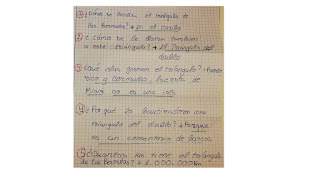 ① ¿Dónde se localiza el triángulo de
las Bermudas? → en el caribe
② ¿Cómo se le llama también
a este triángulo? → El Triángulo del
diablo
③ ¿Qué islas forman el triángulo? - Puerto
rico y Bermudas, faceta de
Miami no es una isla
④ ¿Por qué lo bautizaron como
triángulo del diablo? → Porque
es un cementerio de barcos
⑤ ¿Cuántos km tiene el triángulo
de las Bermudas? → 1.000.000 km